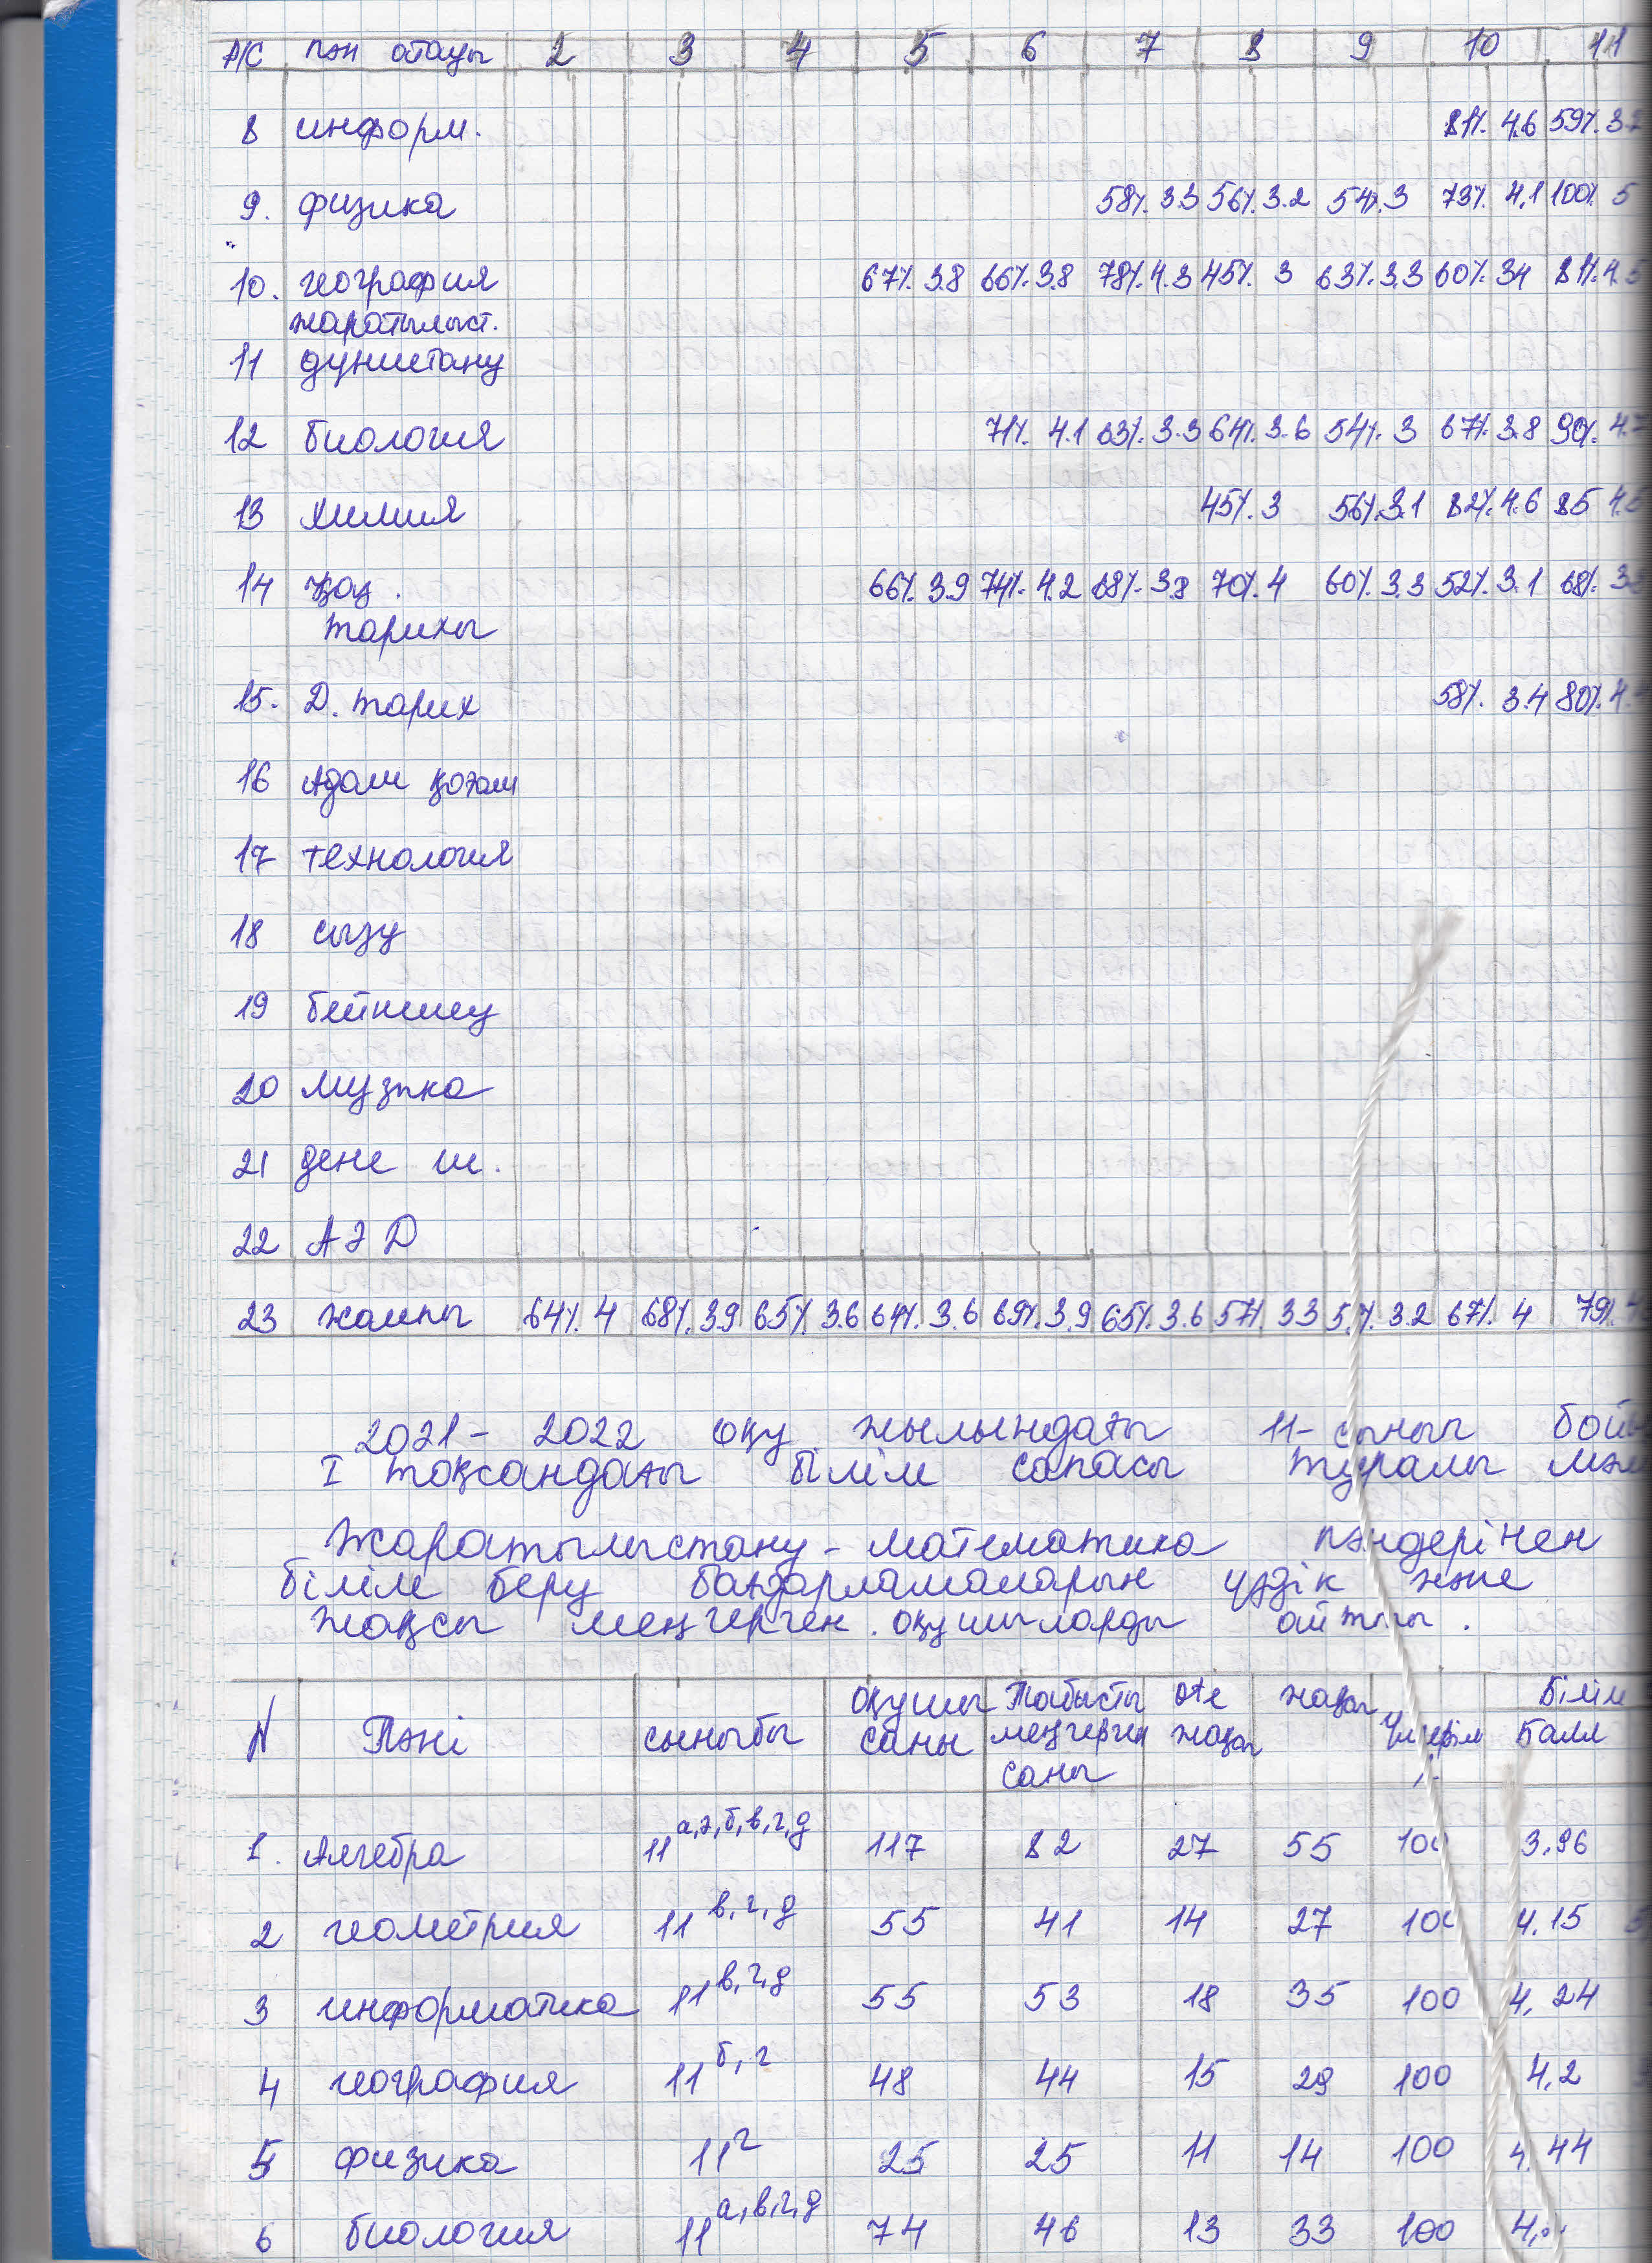 Р/С пән атауы 2 3 4 5 6 7 8 9 10 11
8 информ. 81% 4.6 59% 3.2
9. физика 58% 3.3 56% 3.2 54% 3 73% 4.1 100% 5
10. география 67% 3.8 66% 3.8 78% 4.3 45% 3 63% 3.3 60% 34 81% 4.5
жаратылыст.
11 дүниетану
12 биология 71% 4.1 63% 3.3 64% 3.6 54% 3 67% 3.8 90% 4.7
13 химия 45% 3 56% 3.1 82% 4.6 85
14 Қаз. 66% 3.9 74% 4.2 68% 3.8 70% 4 60% 3.3 52% 3.1 68%
тарихы
15. Д. тарих 58% 3.4 80%
16 Адам қоғам
17 технология
18 сызу
19 бейнелеу
20 музыка
21 дене ш.
22 АӘД
23 жалпы 64% 4 68% 3.9 65% 3.6 64% 3.6 69% 3.9 65% 3.6 57% 33 3.2 67% 4 79%
2021- 2022 оқу жылындағы 11- сынып
I тоқсандағы білім сапасы туралы
Жаратылыстану - математика пәндерінен
білім беру бағдарламаларын үздік және
жақсы меңгерген оқушыларды айтты.
N Пәні сыныбы оқушы саны Табысты меңгерген саны өте жақсы жақсы Үлгерім % Білім Балл
1. Алгебра 11 а,ә,б,в,г,д 117 82 27 55 100 3.96
2 геометрия 11 в,г,д 55 41 14 27 100 4.15
3 информатика 11 в,г,д 55 53 18 35 100 4,24
4 география 11 б,г 48 44 15 29 100 4,2
5 физика 11 г 25 25 11 14 100 4.44
6 биология 11 а,в,г,д 74 46 13 33 100